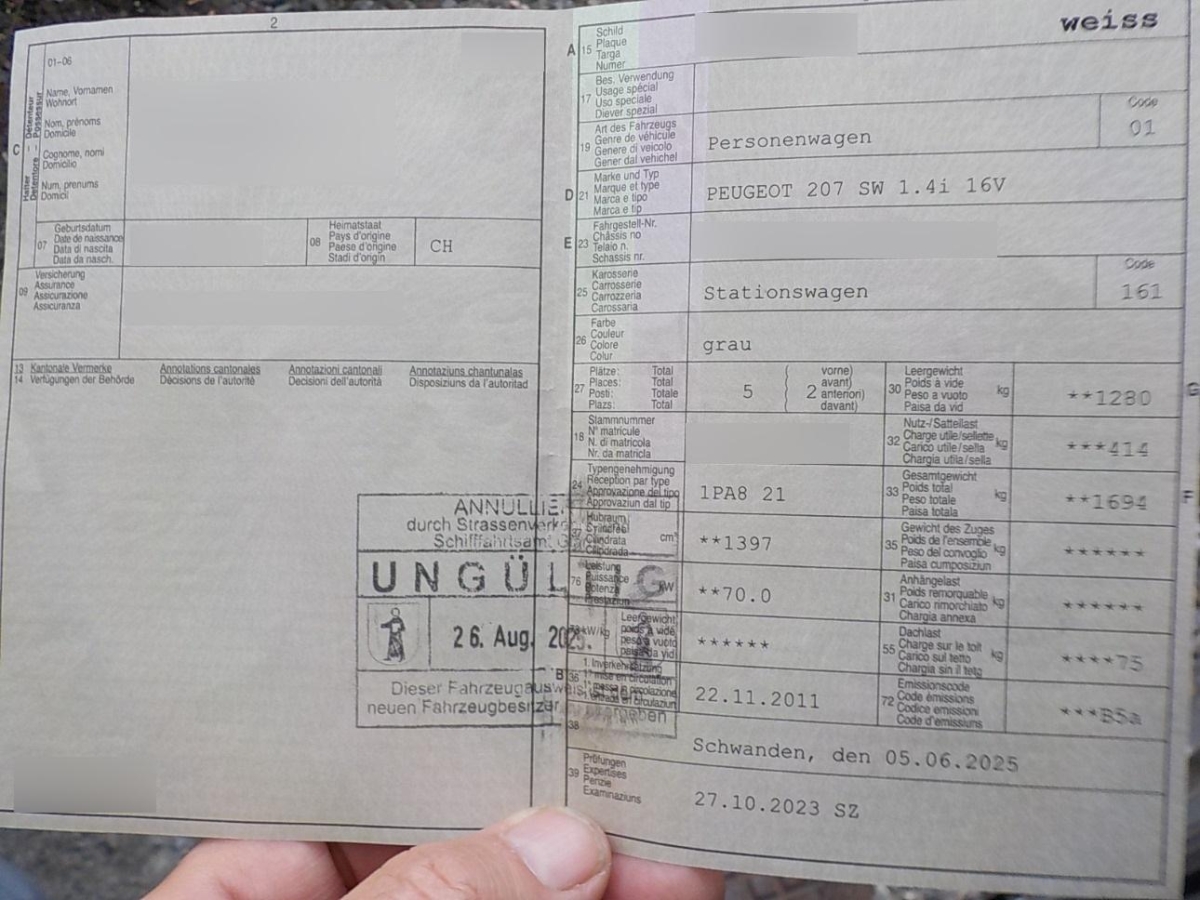 2
01-06
Halter Détenteur
Detentore Possessur
C
Name, Vornamen
Wohnort
Nom, prénoms
Domicile
Cognome, nomi
Domicilio
Num, prenums
Domicil
07
Geburtsdatum
Date de naissance
Data di nascita
Data da nasch.
08
Heimatstaat
Pays d'origine
Paese d'origine
Stadi d'origin
CH
09
Versicherung
Assurance
Assicurazione
Assicuranza
13 Kantonale Vermerke Annotations cantonales Annotazioni cantonali Annotaziuns chantunalas
14 Verfügungen der Behörde Décisions de l'autorité Decisioni dell'autorità Disposiziuns da l'autoritad
ANNULLIE
durch Strassenverke
Schifffahrtsamt
UNGÜL IG
26. Aug. 2025.
Dieser Fahrzeugausweis
neuen Fahrzeugbesitzer
weiss
A 15
Schild
Plaque
Targa
Numer
17
Bes. Verwendung
Usage spécial
Uso speciale
Diever spezial
19
Art des Fahrzeugs
Genre de véhicule
Genere di veicolo
Gener dal vehichel
Personenwagen
Code
01
D 21
Marke und Typ
Marque et type
Marca e tipo
Marca e tip
PEUGEOT 207 SW 1.4i 16V
E 23
Fahrgestell-Nr.
Châssis no
Telaio n.
Schassis nr.
25
Karosserie
Carrosserie
Carrozzeria
Carossaria
Stationswagen
Code
161
26
Farbe
Couleur
Colore
Colur
grau
27
Plätze: Total
Places: Total
Posti: Totale
Plazs: Total
5
2
vorne)
avant)
anteriori)
davant)
30
Leergewicht
Poids à vide
Peso a vuoto
Paisa da vid
kg
**1280
G
18
Stammnummer
N° matricule
N. di matricola
Nr. da matricla
32
Nutz-/Sattellast
Charge utile/sellette
Carico utile/sella
Chargia utila/sella
kg
***414
24
Typengenehmigung
Réception par type
Approvazione del tipo
Approvaziun dal tip
1PA8 21
33
Gesamtgewicht
Poids total
Peso totale
Paisa totala
kg
**1694
F
Hubraum
Cylindrée
Cilindrata
Cilindrada
cm³
**1397
35
Gewicht des Zuges
Poids de l'ensemble
Peso del convoglio
Paisa cumposiziun
kg
******
76
Leistung
Puissance
Potenza
Prestaziun
kW
**70.0
31
Anhängelast
Poids remorquable
Carico rimorchiato
Chargia annexa
kg
******
kW/kg
Leergewicht
poids à vide
peso a vuoto
paisa da vid
******
55
Dachlast
Charge sur le toit
Carico sul tetto
Chargia sin il tetg
kg
****75
B 36
1. Inverkehrsetzung
22.11.2011
72
Emissionscode
Code émissions
Codice emissioni
Code d'emissiuns
***B5a
38
Schwanden, den 05.06.2025
39
Prüfungen
Expertises
Perizie
Examinaziuns
27.10.2023 SZ